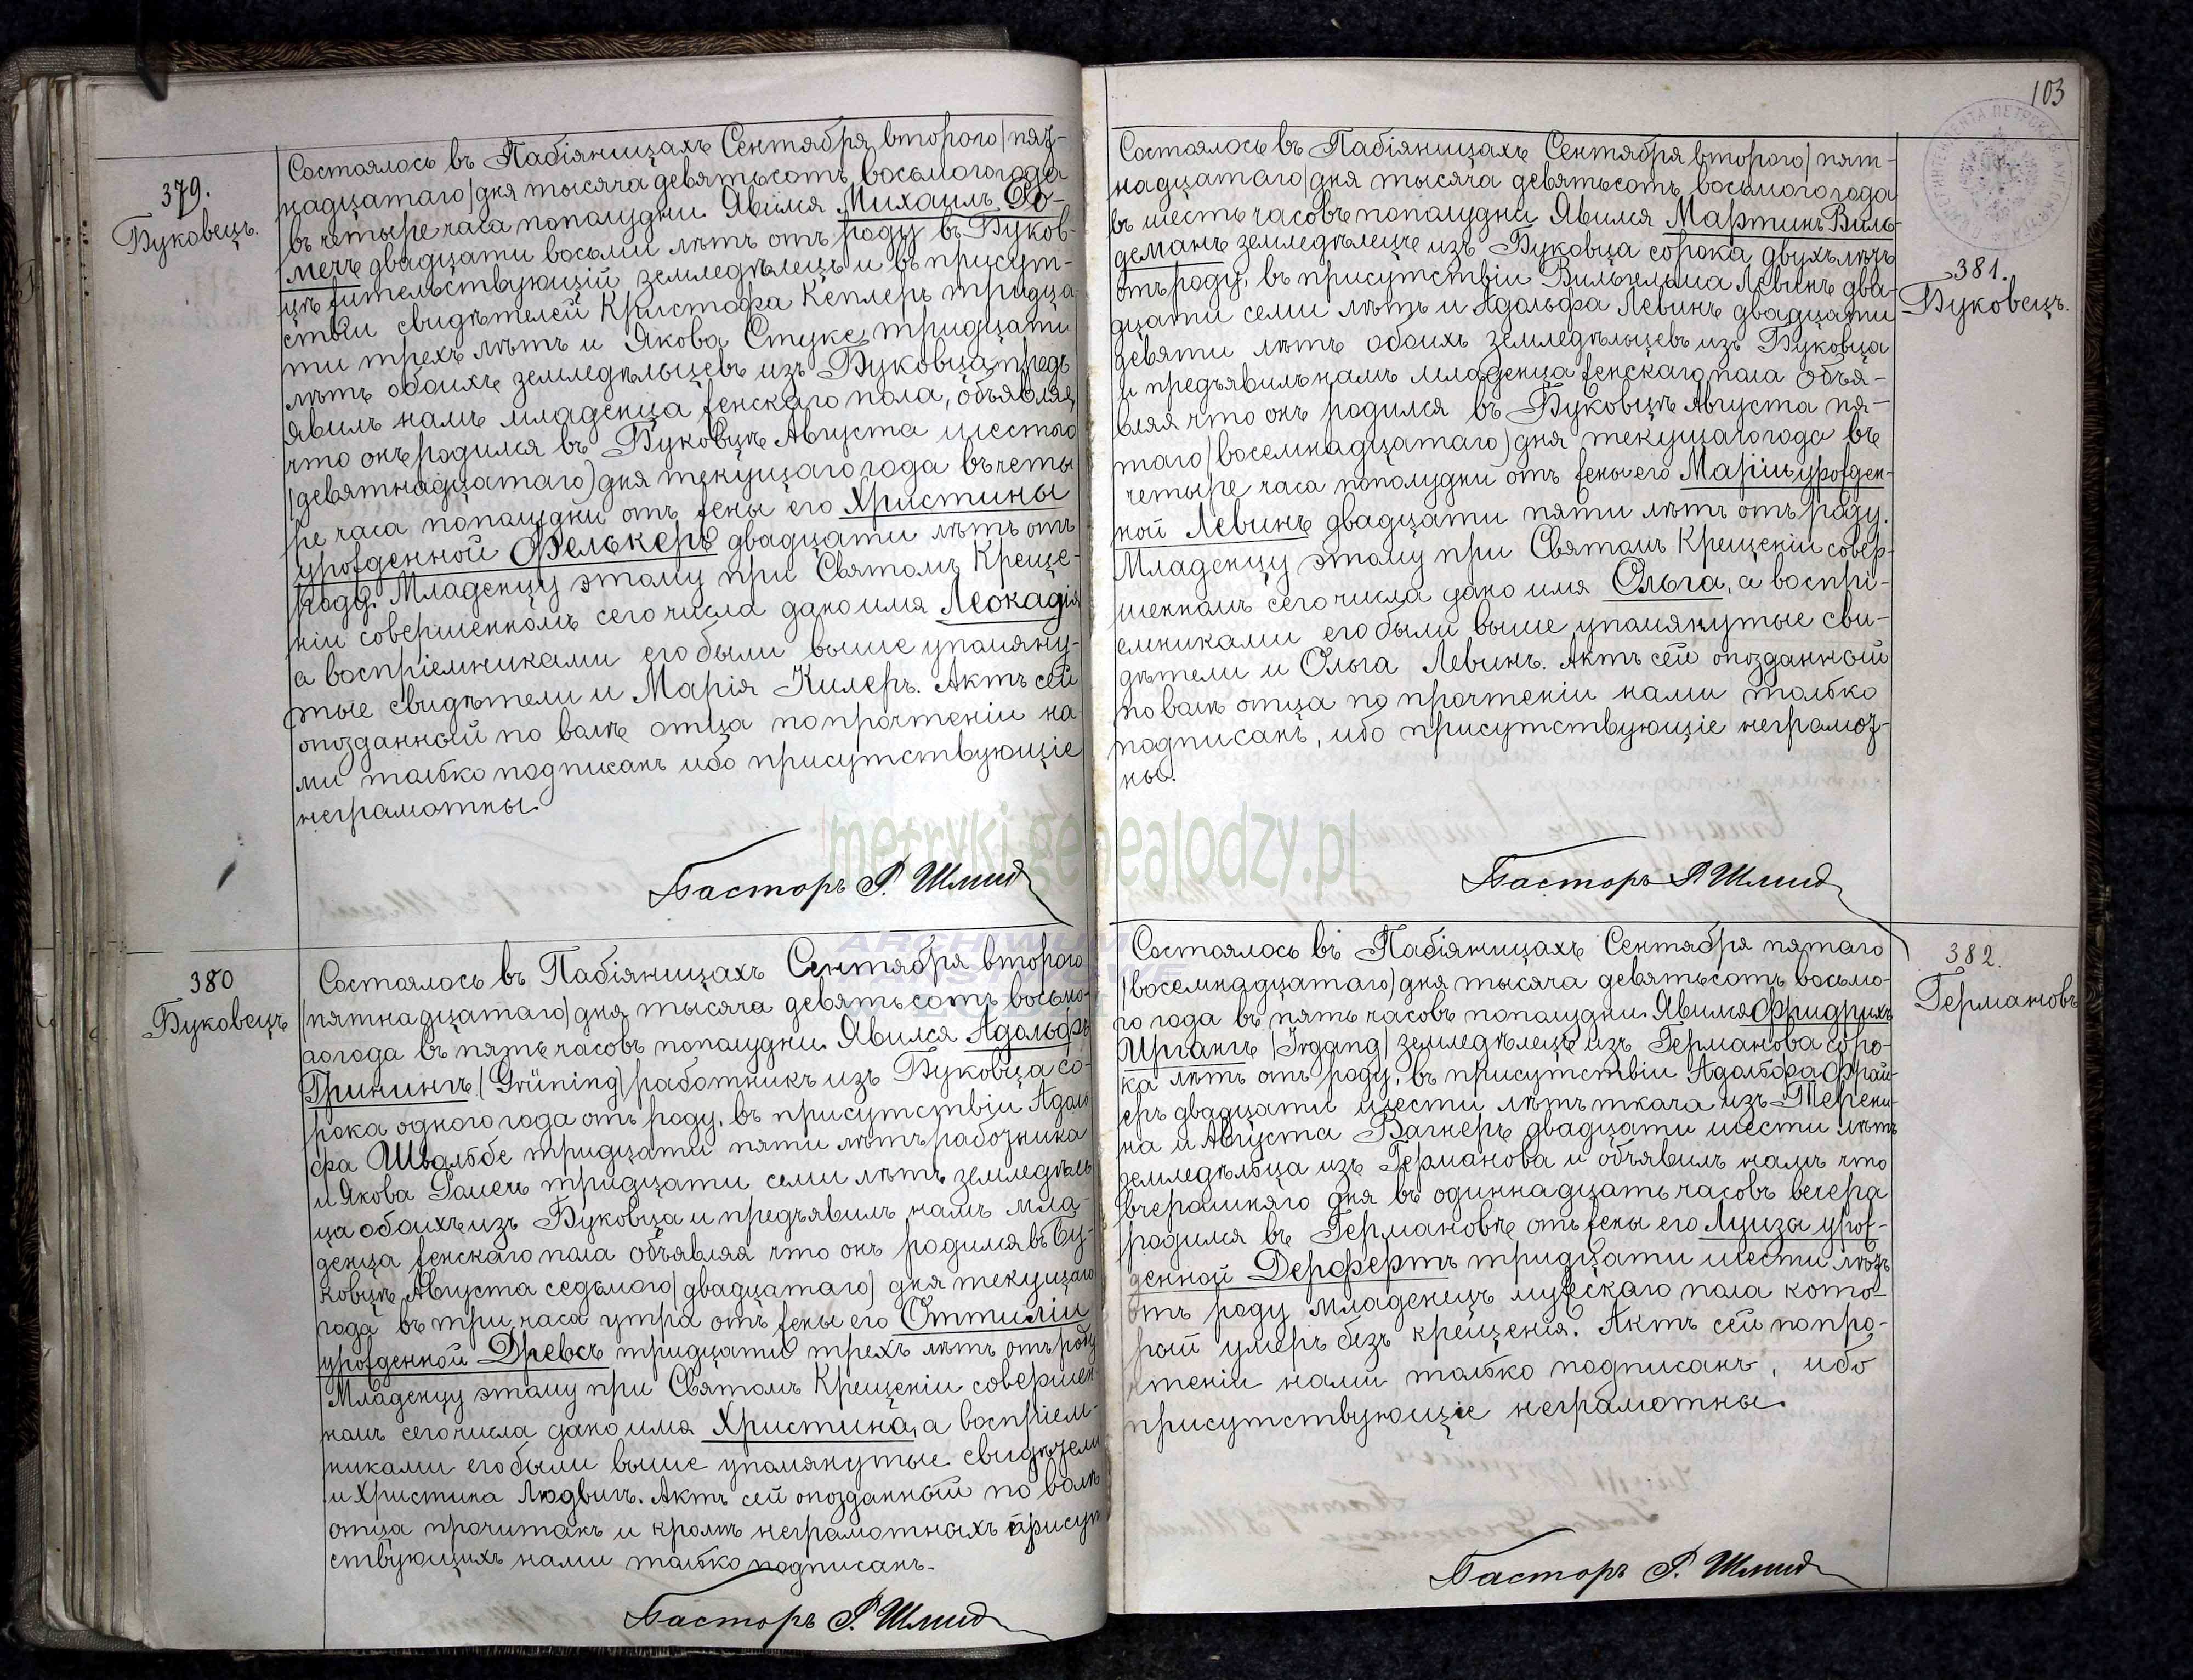 379.
Буковецъ.
Состоялось въ Пабіяницахъ Сентября второго/пят-
надцатаго/дня тысяча девятьсотъ восьмого года
въ четыре часа пополудни. Явился Михаилъ
двадцати восьми лѣтъ отъ роду въ Буков-
цѣ жительствующій земледѣлецъ и въ присут-
ствіи свидѣтелей Кристофа Кеплеръ тридца-
ти трехъ лѣтъ и Якова Стуке тридцати
лѣтъ обоихъ земледѣльцевъ изъ Буковца предъ
явилъ намъ младенца женскаго пола, объявляя,
что онъ родился въ Буковцѣ Августа шестого
/девятнадцатаго/дня текущаго года въ четы
ре часа пополудни отъ жены его Христины
урожденной Фелькеръ двадцати лѣтъ отъ
роду. Младенцу этому при Святомъ Креще-
ніи совершенномъ сего числа дано имя Леокадія
а воспріемниками его были выше упомяну-
тые свидѣтели и Марія Килеръ. Актъ сей
опозданный по волѣ отца по прочтеніи на-
ми только подписанъ ибо присутствующіе
неграмотны.
Пасторъ Р. Шмидт
380
Буковецъ
Состоялось въ Пабіяницахъ Сентября второго
/пятнадцатаго/дня тысяча девятьсотъ восьмо-
го года въ пять часовъ пополудни. Явился Адольфъ
Грюнингъ /Grüning/ работникъ изъ Буковца со-
рока одного года отъ роду, въ присутствіи Адоль
фа Швальбе тридцати пяти лѣтъ работника
и Якова тридцати семи лѣтъ земледѣль
ца обоихъ изъ Буковца и предъявилъ намъ мла-
денца женскаго пола объявляя что онъ родился въ Бу-
ковцѣ Августа седьмого/двадцатаго/ дня текущаго
года въ три часа утра отъ жены его Оттиліи
урожденной Древсъ тридцати трехъ лѣтъ отъ роду
Младенцу этому при Святомъ Крещеніи совершен
номъ сего числа дано имя Христина, а воспріем-
никами его были выше упомянутые свидѣтели
и Христина Людвигъ. Актъ сей опозданный по волѣ
отца прочитанъ и кромѣ неграмотныхъ присут
ствующихъ нами только подписанъ.
Пасторъ Р. Шмидт
103
381.
Буковецъ.
Состоялось въ Пабіяницахъ Сентября второго/пят-
надцатаго/дня тысяча девятьсотъ восьмого года
въ шесть часовъ пополудни Явился Мартинъ Виль-
деманъ земледѣлецъ изъ Буковца сорока двухъ лѣтъ
отъ роду, въ присутствіи Вильгельма Левинъ два-
дцати семи лѣтъ и Адольфа Левинъ двадцати
девяти лѣтъ обоихъ земледѣльцевъ изъ Буковца
и предъявилъ намъ младенца женскаго пола объя-
вляя что онъ родился въ Буковцѣ Августа пя-
таго/восемнадцатаго/дня текущаго года въ
четыре часа пополудни отъ жены его Маріи урожден-
ной Левинъ двадцати пяти лѣтъ отъ роду.
Младенцу этому при Святомъ Крещеніи совер-
шенномъ сего числа дано имя Ольга, а воспрі-
емниками его были выше упомянутые сви-
дѣтели и Ольга Левинъ. Актъ сей опозданный
по волѣ отца по прочтеніи нами только
подписанъ, ибо присутствующіе неграмот-
ны.
Пасторъ Р. Шмидт
382.
Германовъ
Состоялось въ Пабіяницахъ Сентября пятаго
/восемнадцатаго/дня тысяча девятьсотъ восьмо-
го года въ пять часовъ пополудни. Явился Фридрихъ
Иргангъ /Irgang/ земледѣлецъ изъ Германова соро-
ка лѣтъ отъ роду, въ присутствіи Адольфа Фрай-
еръ двадцати шести лѣтъ ткача изъ Терени-
на и Августа Вагнеръ двадцати шести лѣтъ
земледѣльца изъ Германова и объявилъ намъ что
вчерашняго дня въ одиннадцать часовъ вечера
родился въ Германовѣ отъ жены его Луизы урож-
денной Дерфертъ тридцати шести лѣтъ
отъ роду младенецъ мужскаго пола кото-
рый умеръ безъ крещенія. Актъ сей по про-
чтеніи нами только подписанъ, ибо
присутствующіе неграмотны.
Пасторъ Р. Шмидт
metryki.genealodzy.pl